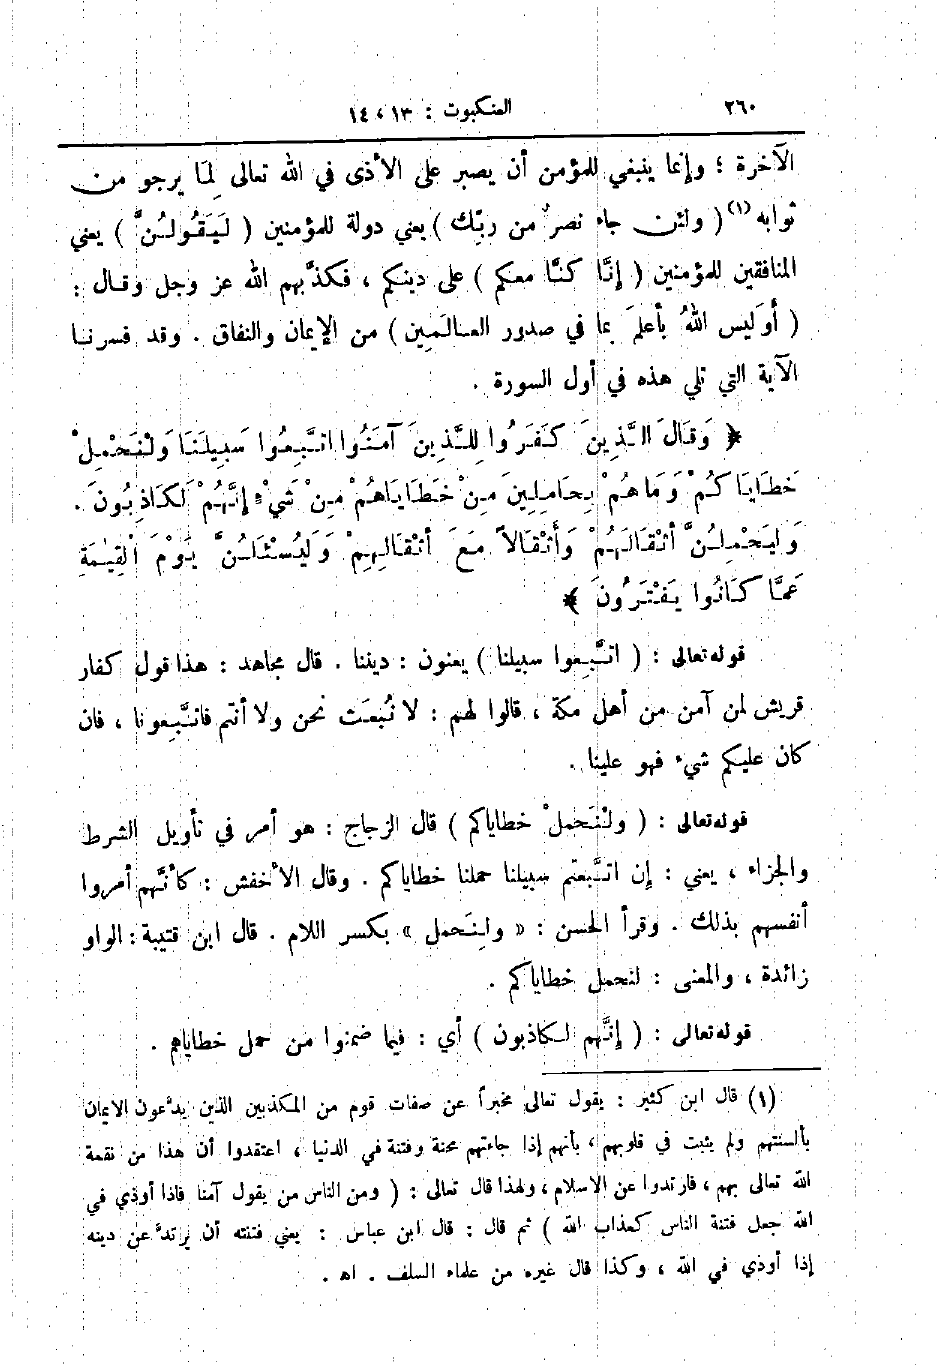 ٢٦٠ العنكبوت : ١٣ ، ١٤
الآخرة ؛ وإنما ينبغي للمؤمن أن يصبر على الأذى في الله تعالى لِمَا يرجو من
ثوابه (١) ( ولئن جاء نصرٌ من ربِّك ) يعني دولة للمؤمنين ( لَيَقُولُنَّ ) يعني
المنافقين للمؤمنين ( إنَّا كنَّا معكم ) على دينكم ، فكذَّبهم الله عز وجل وقال :
( أوَليس اللهُ بأعلمَ بما في صدور العالَمِين ) من الإيمان والنفاق . وقد فسرنا
الآية التي تلي هذه في أول السورة .
﴿ وَقَالَ الَّذِينَ كَفَرُوا لِلَّذِينَ آمَنُوا اتَّبِعُوا سَبِيلَنَا وَلْنَحْمِلْ
خَطَايَاكُمْ وَمَا هُمْ بِحَامِلِينَ مِنْ خَطَايَاهُمْ مِنْ شَيْءٍ إِنَّهُمْ لَكَاذِبُونَ .
وَلَيَحْمِلُنَّ أَثْقَالَهُمْ وَأَثْقَالاً مَعَ أَثْقَالِهِمْ وَلَيُسْئَلُنَّ يَوْمَ الْقِيٰمَةِ
عَمَّا كَانُوا يَفْتَرُونَ ﴾
قوله تعالى : ( اتَّبِعوا سبيلنا ) يعنون : ديننا . قال مجاهد : هذا قول كفار
قريش لمن آمن من أهل مكة ، قالوا لهم : لا نُبعَث نحن ولا أنتم فاتَّبِعونا ، فان
كان عليكم شيء فهو علينا .
قوله تعالى : ( ولْنَحْمِلْ خطاياكم ) قال الزجاج : هو أمر في تأويل الشرط
والجزاء ، يعني : إن اتَّبعتم سبيلنا حملنا خطاياكم . وقال الأخفش : كأنَّهم أمروا
أنفسهم بذلك . وقرأ الحسن : « ولِنَحمل » بكسر اللام . قال ابن قتيبة : الواو
زائدة ، والمعنى : لنحمل خطاياكم .
قوله تعالى : ( إنَّهم لكاذبون ) أي : فيما ضمنوا من حمل خطاياهم .
(١) قال ابن كثير : يقول تعالى مخبراً عن صفات قوم من المكذبين الذين يدَّعون الايمان
بألسنتهم ولم يثبت في قلوبهم ، بأنهم إذا جاءتهم محنة وفتنة في الدنيا ، اعتقدوا أن هذا من نقمة
الله تعالى بهم ، فارتدوا عن الاسلام ، ولهذا قال تعالى : ( ومن الناس من يقول آمنا فاذا أوذي في
الله جعل فتنة الناس كعذاب الله ) ثم قال : قال ابن عباس : يعني فتنته أن يرتدَّ عن دينه
إذا أوذي في الله ، وكذا قال غيره من علماء السلف . اه .